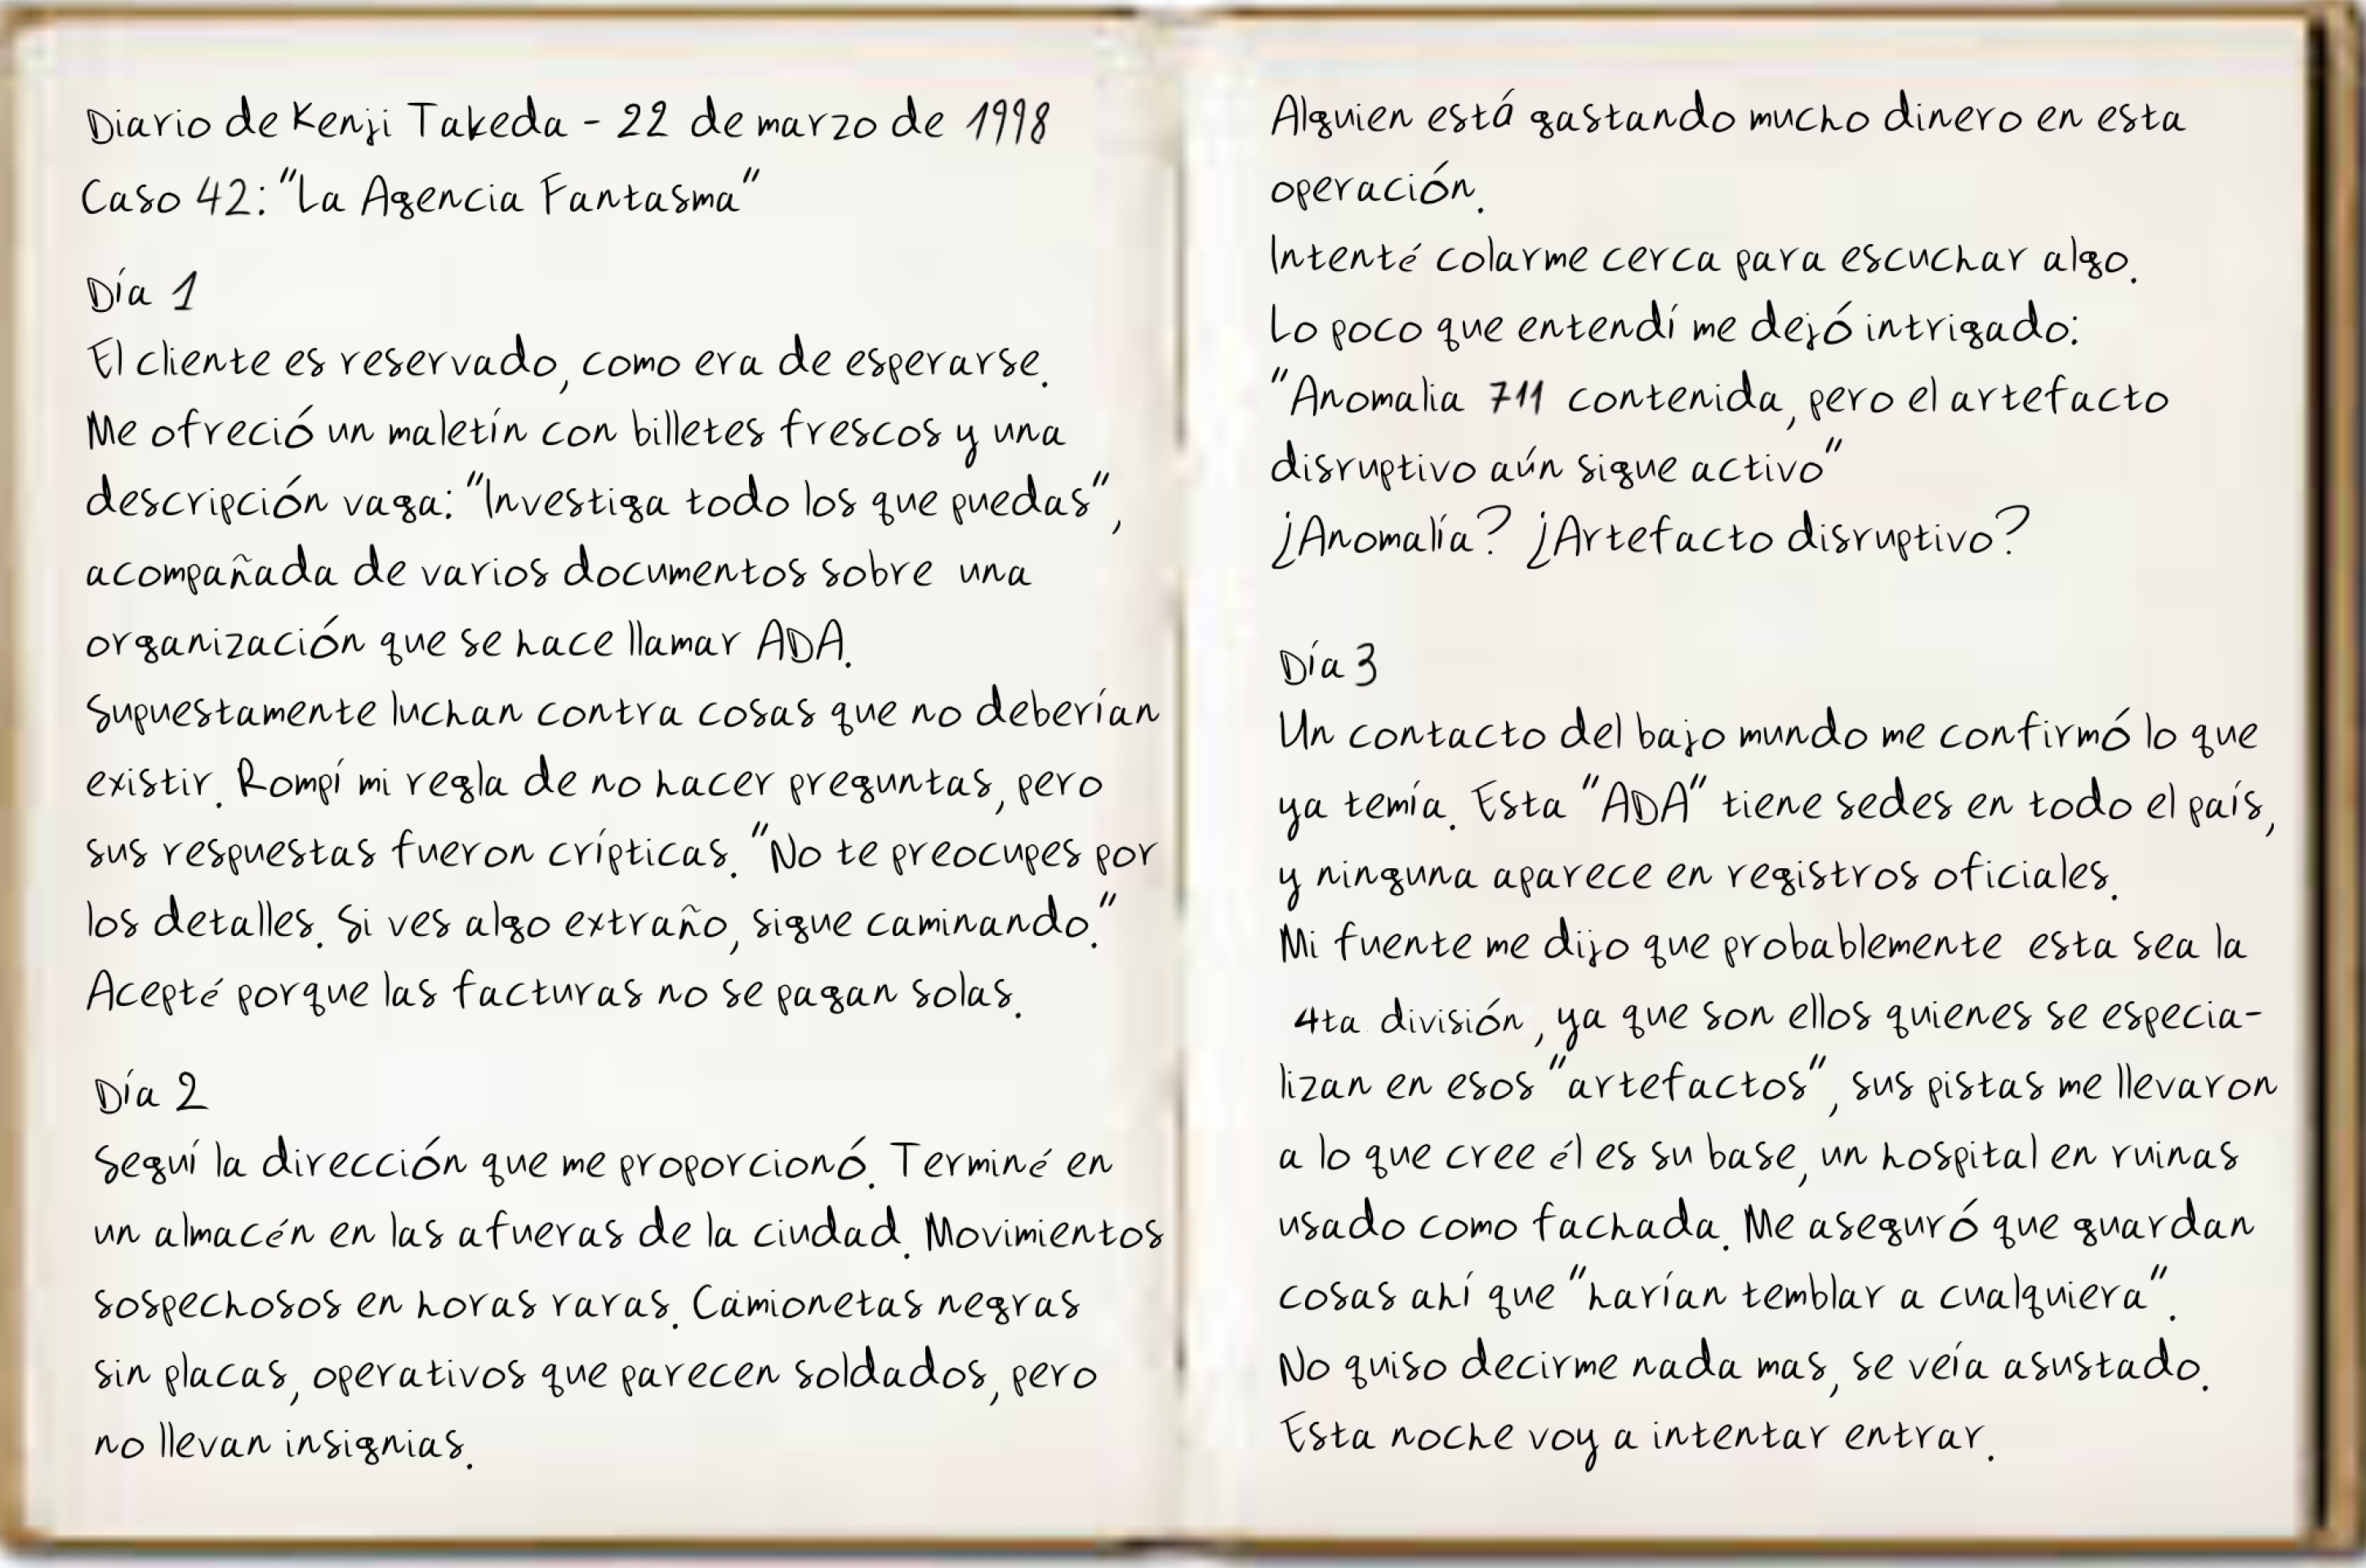 Diario de Kenji Takeda - 22 de marzo de 1998
Caso 42: "La Agencia Fantasma"
Día 1
El cliente es reservado, como era de esperarse.
Me ofreció un maletín con billetes frescos y una
descripción vaga: "Investiga todo los que puedas",
acompañada de varios documentos sobre una
organización que se hace llamar ADA.
Supuestamente luchan contra cosas que no deberían
existir. Rompí mi regla de no hacer preguntas, pero
sus respuestas fueron crípticas. "No te preocupes por
los detalles. Si ves algo extraño, sigue caminando."
Acepté porque las facturas no se pagan solas.
Día 2
Seguí la dirección que me proporcionó. Terminé en
un almacén en las afueras de la ciudad. Movimientos
sospechosos en horas raras. Camionetas negras
sin placas, operativos que parecen soldados, pero
no llevan insignias.
Alguien está gastando mucho dinero en esta
operación.
Intenté colarme cerca para escuchar algo.
Lo poco que entendí me dejó intrigado:
"Anomalia 711 contenida, pero el artefacto
disruptivo aún sigue activo"
¿Anomalía? ¿Artefacto disruptivo?
Día 3
Un contacto del bajo mundo me confirmó lo que
ya temía. Esta "ADA" tiene sedes en todo el país,
y ninguna aparece en registros oficiales.
Mi fuente me dijo que probablemente esta sea la
4ta división, ya que son ellos quienes se especia-
lizan en esos "artefactos", sus pistas me llevaron
a lo que cree él es su base, un hospital en ruinas
usado como fachada. Me aseguró que guardan
cosas ahí que "harían temblar a cualquiera".
No quiso decirme nada mas, se veía asustado.
Esta noche voy a intentar entrar.